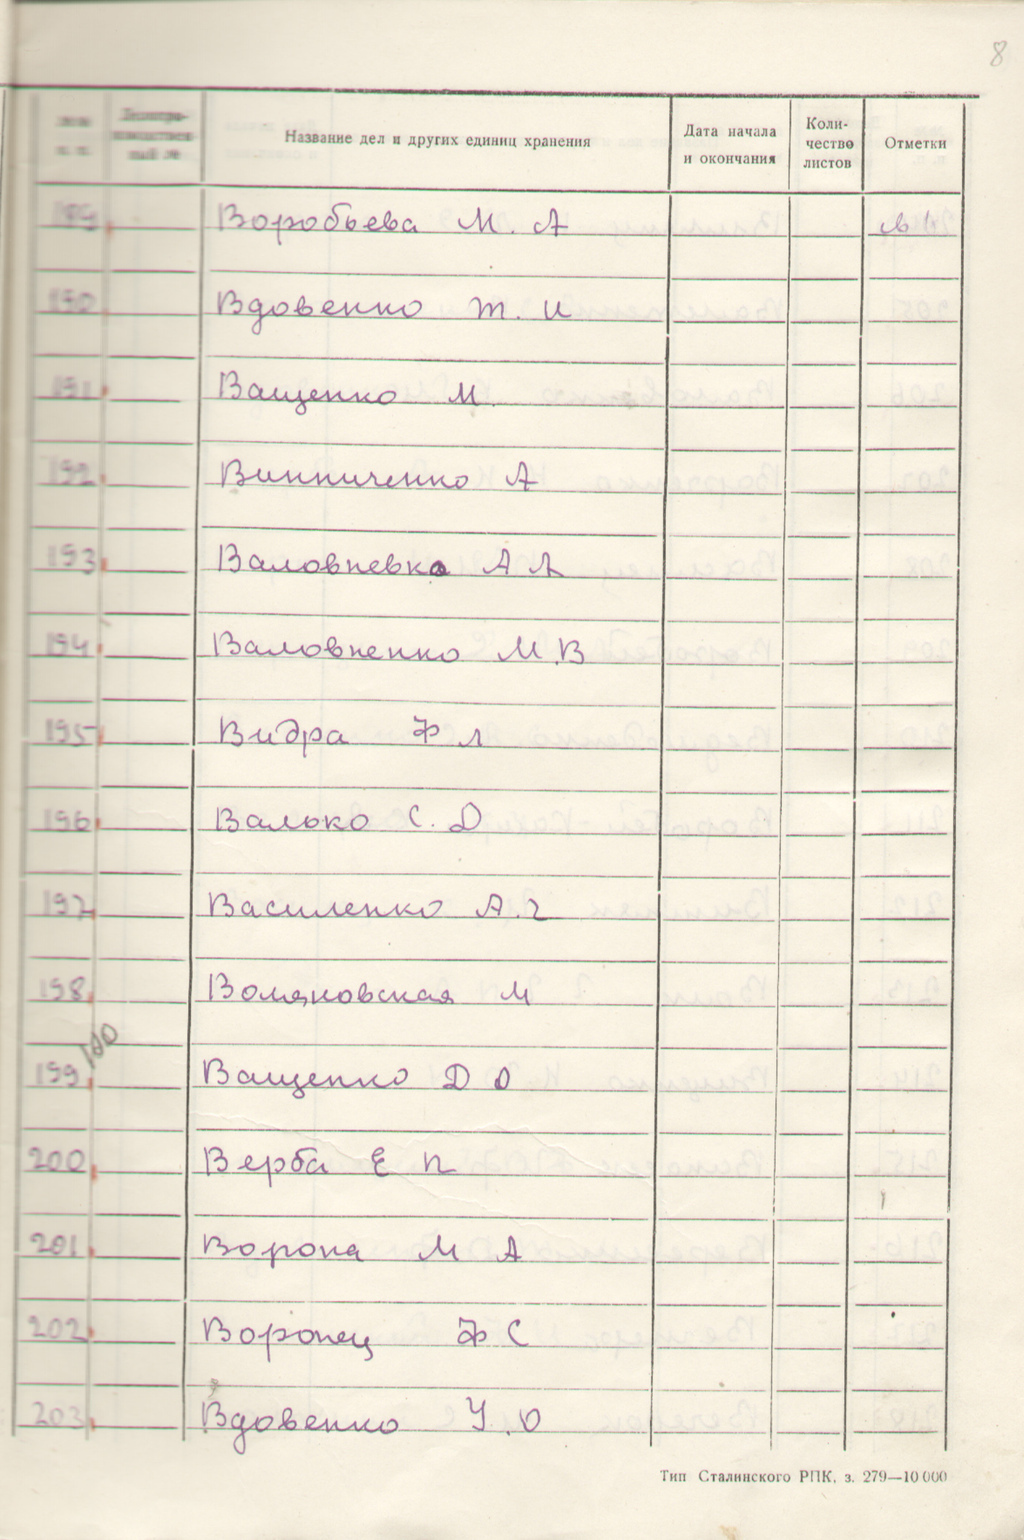 8
№№ п. п. Делопро- Название дел и других единиц хранения Дата начала и окончания Коли- чество листов Отметки
189 Воробьева М. А
190 Вдовенко Т. И
191 Ващенко М.
192 Винниченко А
193 Валовневка А А
194 Валовненко М.В
195 Видра Ф Л
196 Валько С. Д
197 Василенко А. Г
198 Воляновская М
100
199 Ващенко Д О
200 Верба Е П
201 Ворона М А
202 Воронец Ф С
203 Вдовенко У. О
Тип Сталинского РПК, з. 279—10 000